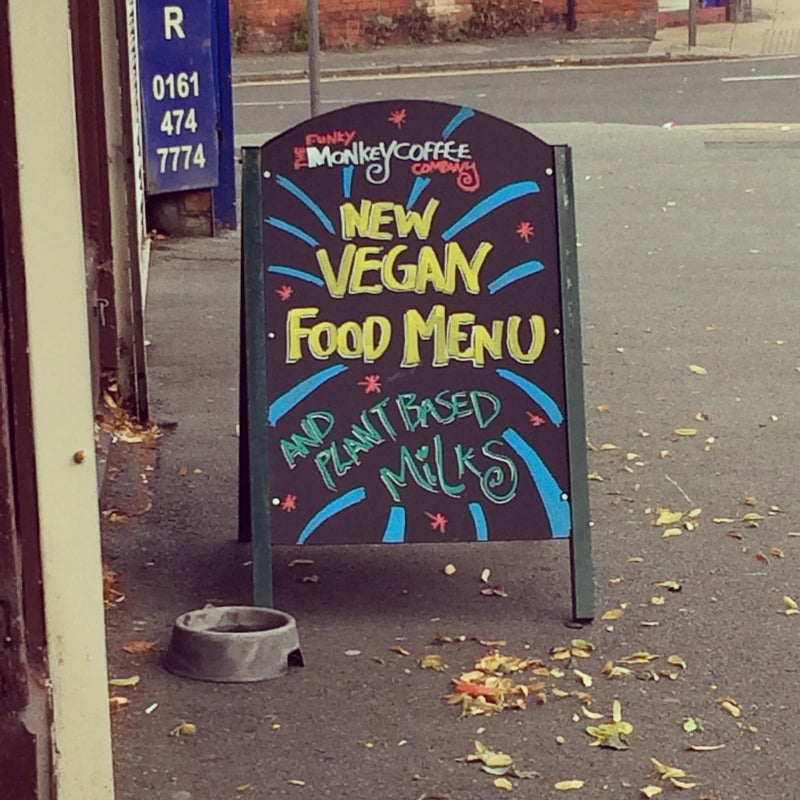 R
0161
474
7774
THE FUNKY
MONKEY COFFEE
COMPANY
NEW
VEGAN
FOOD MENU
AND PLANT BASED
MILKS